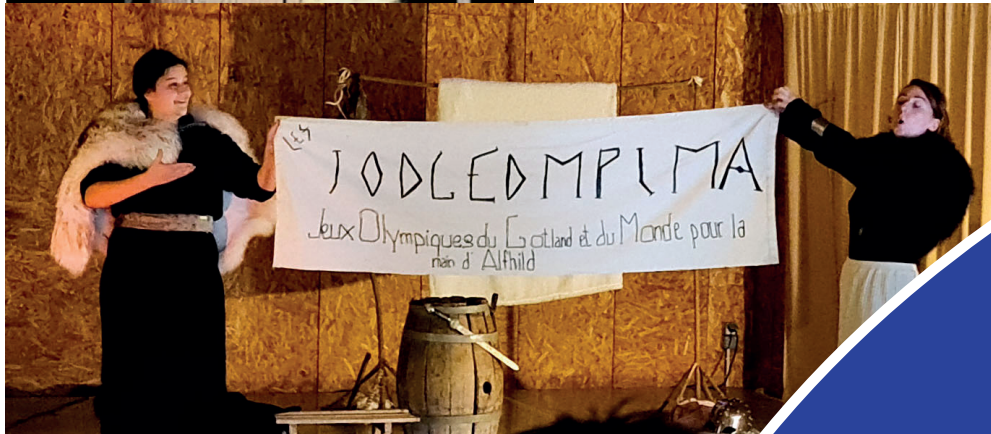 LES
JODGEDMPLMA
Jeux Olympiques du Gotland et du Monde pour la
main d'Alfhild